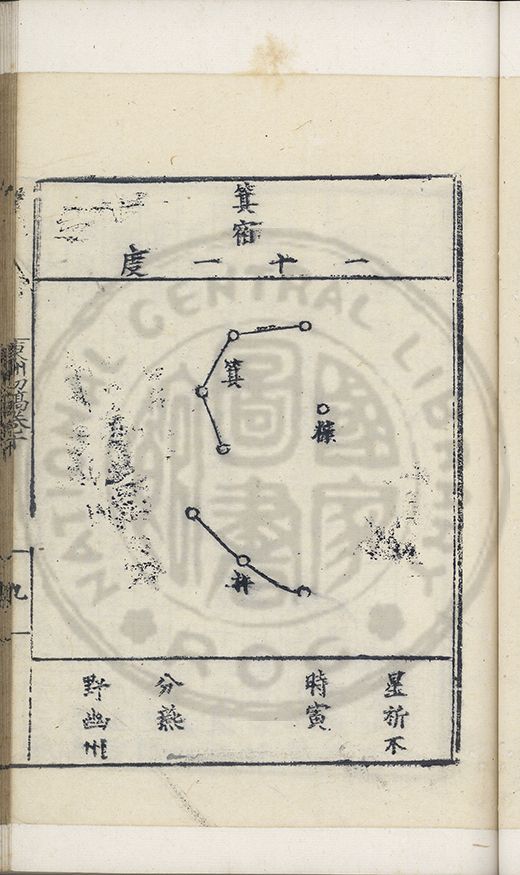 箕宿
一十一度
箕
糠
杵
星析木
時寅
分燕
野幽州
九
NATIONAL CENTRAL LIBRARY
R.O.C.
國家
圖書